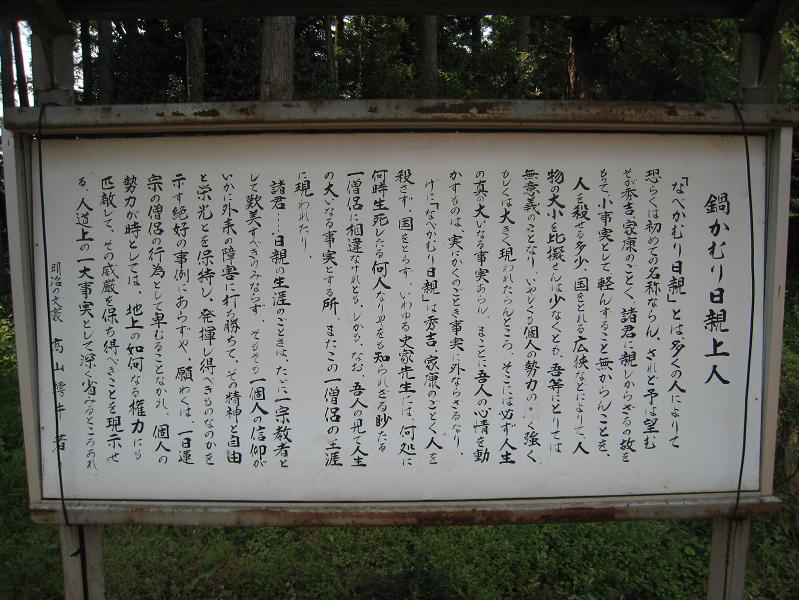 鍋かむり日親上人
「なべかむり日親」とは多くの人によりて
恐らくは初めての名称ならん、されど予は望む
そが秀吉、家康のごとく、諸君に親しからざるの故を
もって、小事実として軽んずること無からんことを、
人を殺せる多少、国をとれる広狭などによりて、人
物の大小を比擬せんは少なくとも、吾等にとりては
無意義のことなり、いやしくも個人の勢力の 強く、
もしくは大きく現われたらんところ、そこには必ず人生
の真の大いなる事実あらん、まことに吾人の心情を動
かすものは、実にかくのごとき事実に外ならざるなり、
げに「なべかむり日親」は秀吉、家康のごとく人を
殺さず、国をとらず、いわゆる史家先生には、何処に
何時生死したる何人なりやをも知られざる眇たる
一僧侶に相違なけれども、しかも、なお、吾人の見て人生
の大いなる事実とする所、またこの一僧侶の生涯
に現われたり、
諸君……日親の生涯のごときは、たゞに一宗教者と
して歎美すべきのみならず、そもそも一個人の信仰が
いかに外来の障害に打ち勝ちて、その精神と自由
と栄光とを保持し、発揮し得べきものなのかを
示す絶好の事例にあらずや、願わくは、一日蓮
宗の僧侶の行為として卑むることなかれ、個人の
勢力が時としては、地上の如何なる権力にも
匹敵して、その威厳を保ち得べきことを現示せ
る、人道上の一大事実として深く省みるところあれ、
明治の文豪 高山樗牛著